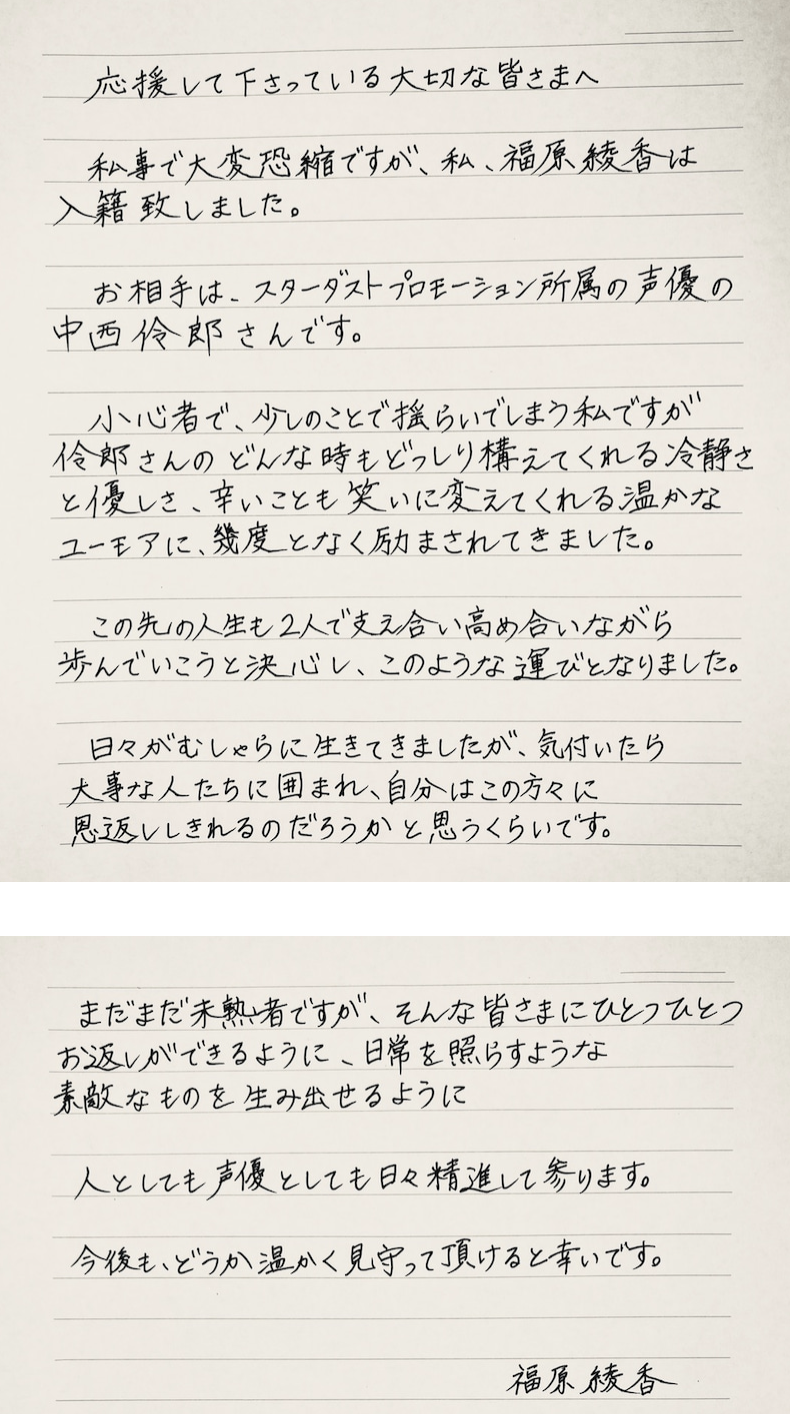 応援して下さっている大切な皆さまへ
私事で大変恐縮ですが、私、福原綾香は
入籍致しました。
お相手は、スターダストプロモーション所属の声優の
中西伶郎さんです。
小心者で、少しのことで揺らいでしまう私ですが
伶郎さんのどんな時もどっしり構えてくれる冷静さ
と優しさ、辛いことも笑いに変えてくれる温かな
ユーモアに、幾度となく励まされてきました。
この先の人生も2人で支え合い高め合いながら
歩んでいこうと決心し、このような運びとなりました。
日々がむしゃらに生きてきましたが、気付いたら
大事な人たちに囲まれ、自分はこの方々に
恩返ししきれるのだろうかと思うくらいです。
まだまだ未熟者ですが、そんな皆さまにひとつひとつ
お返しができるように、日常を照らすような
素敵なものを生み出せるように
人としても声優としても日々精進して参ります。
今後も、どうか温かく見守って頂けると幸いです。
福原綾香